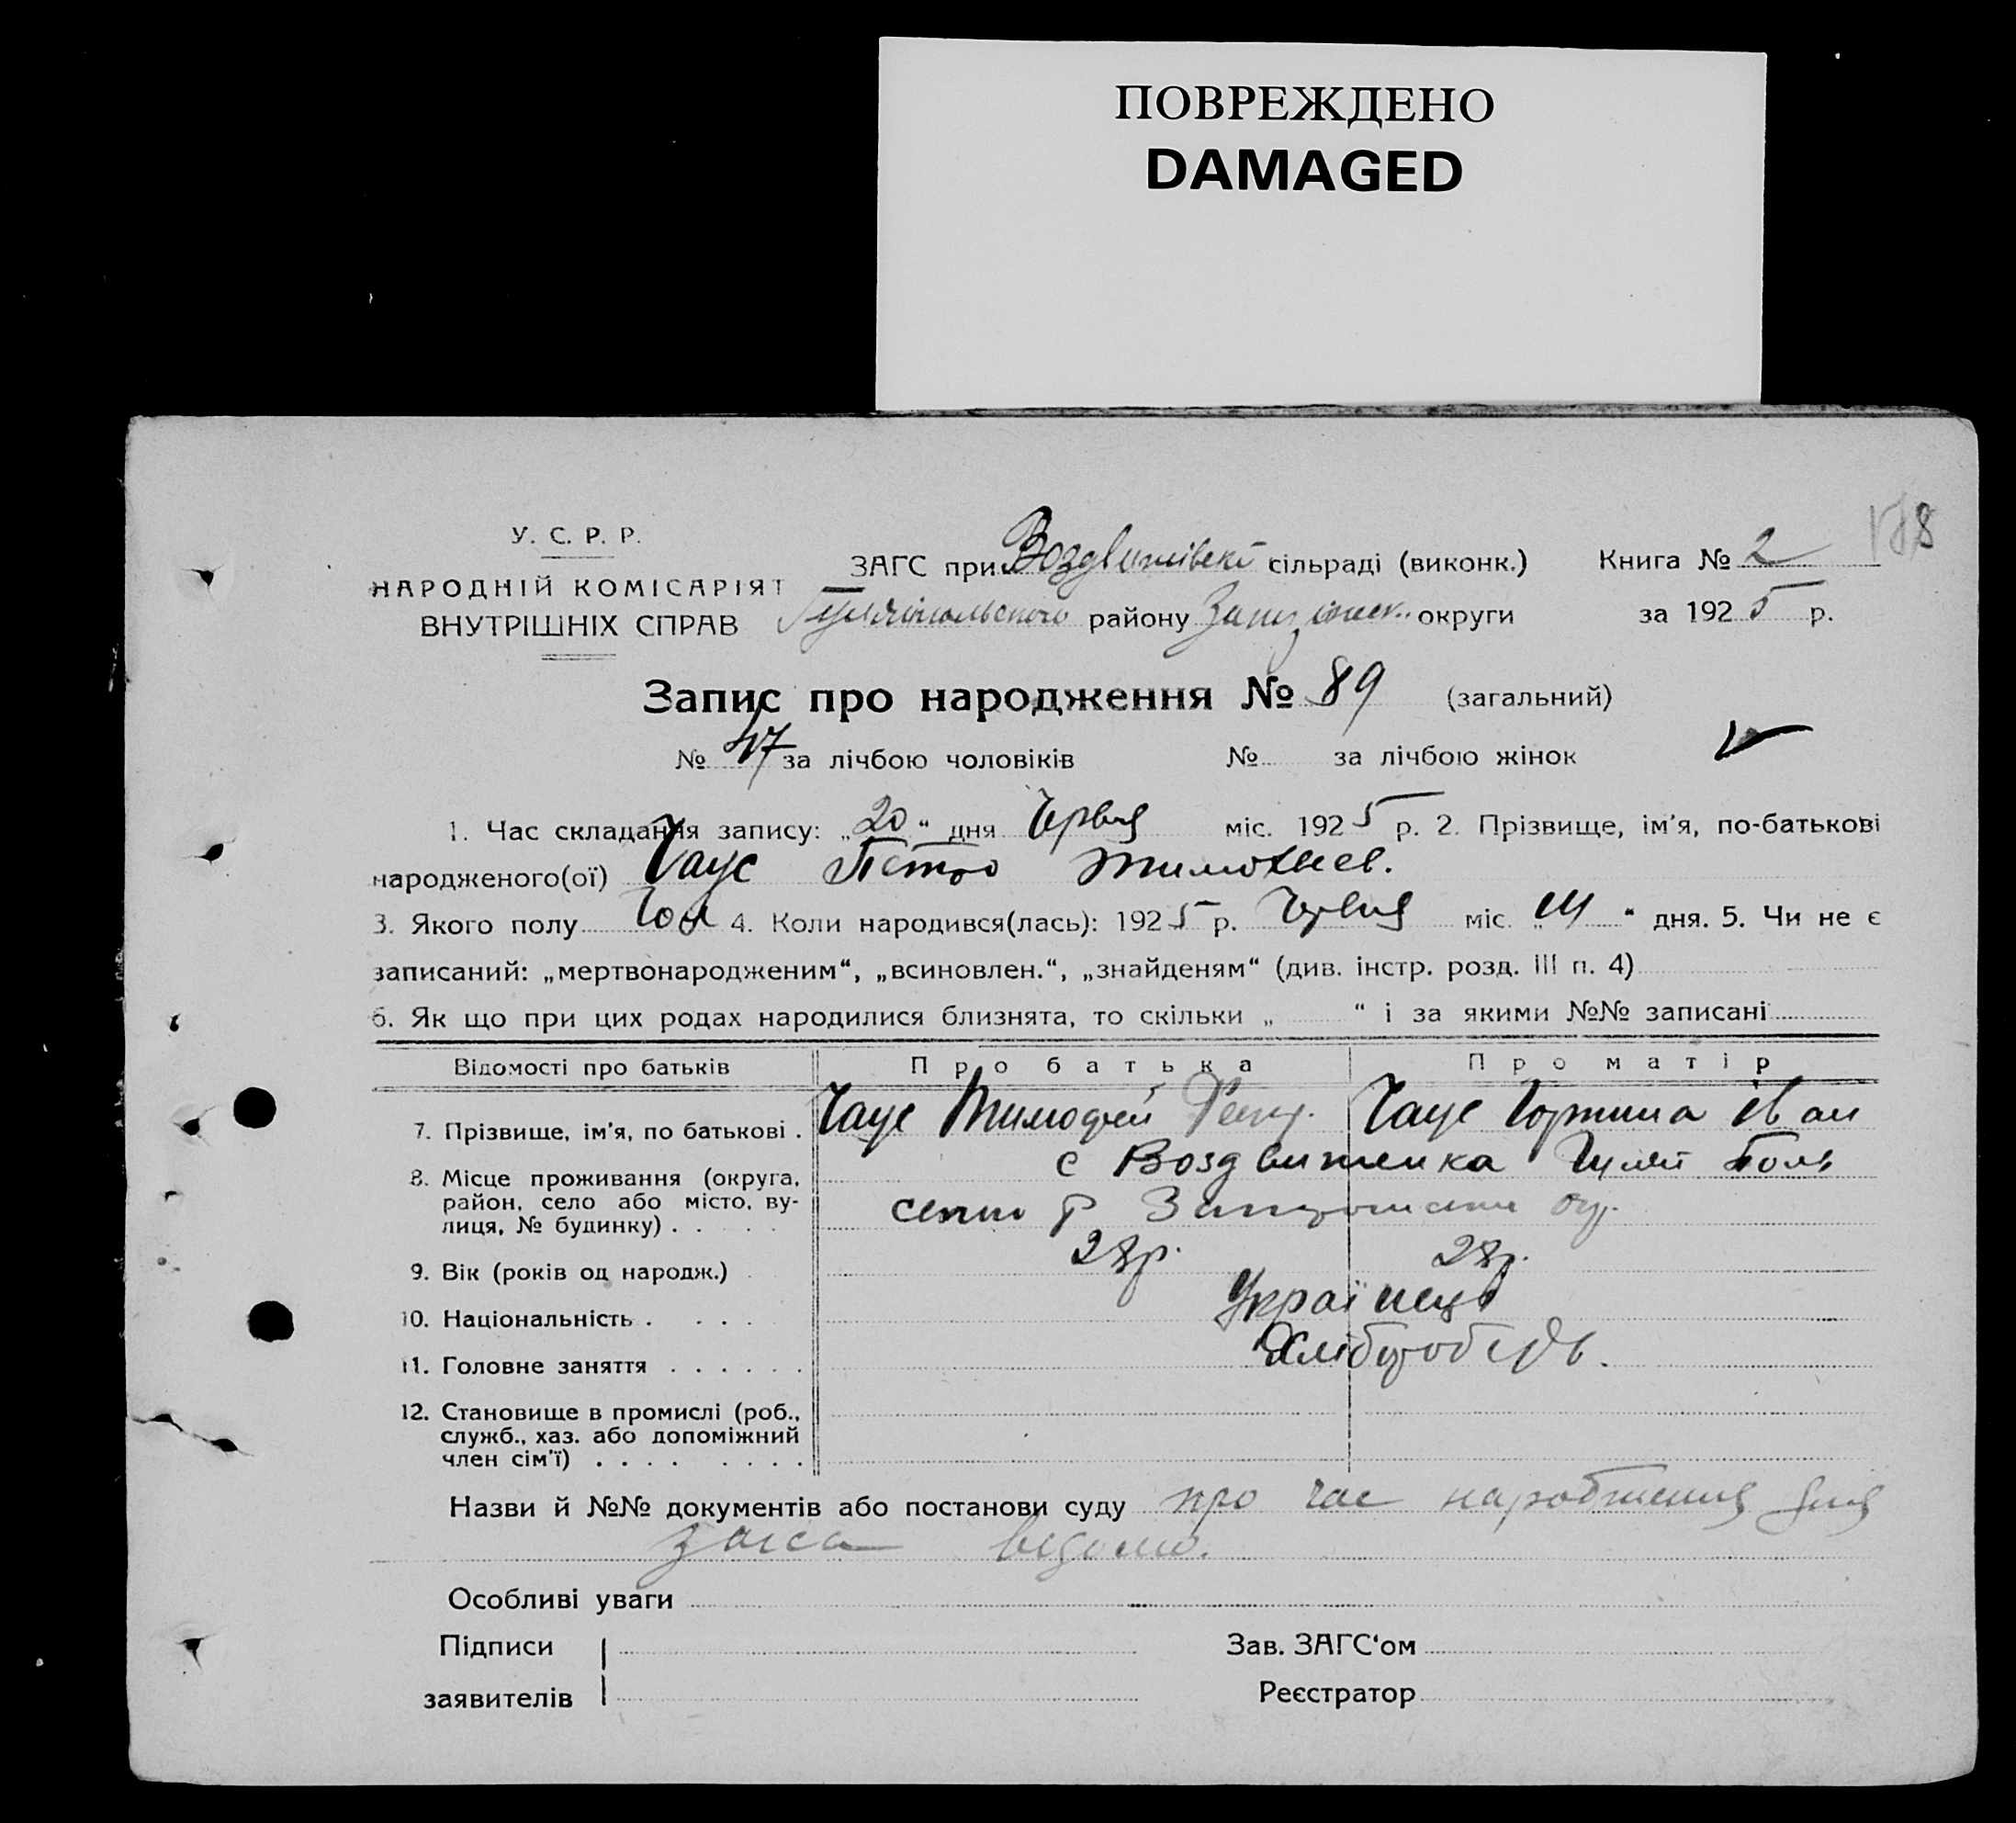 ПОВРЕЖДЕНО
DAMAGED
178
У. С. Р. Р.
НАРОДНІЙ КОМІСАРІЯТ
ВНУТРІШНІХ СПРАВ
ЗАГС при Воздвижівскі сільраді (виконк.) Книга № 2
Гуляйпольского району округи за 1925 р.
Запис про народження № 89 (загальний)
№ 47 за лічбою чоловіків № за лічбою жінок
1. Час складання запису: „20“ дня Червня міс. 1925 р. 2. Прізвище, ім'я, по-батькові
народженого(ої) Чаус Петро Тимохиев.
3. Якого полу Чол 4. Коли народився(лась): 1925 р. Червня міс. „ “ дня. 5. Чи не є
записаний: „мертвонародженим“, „всиновлен.“, „знайденям“ (див. інстр. розд. III п. 4)
6. Як що при цих родах народилися близнята, то скільки „ “ і за якими №№ записані
Відомості про батьків Про батька Про матір
7. Прізвище, ім'я, по батькові . Чаус Тимофей Чаус Іван
8. Місце проживання (округа, район, село або місто, вулиця, № будинку) . . с Воздвиженка Гуляй Поль
Р
9. Вік (років од народж.) 28р. 28р.
10. Національність . . . . Українці
11. Головне заняття . . . . . . Хлібороб
12. Становище в промислі (роб., служб., хаз. або допоміжний член сім'ї) . . . . . . . .
Назви й №№ документів або постанови суду про час народження для
загса ведомо.
Особливі уваги
Підписи Зав. ЗАГС'ом
заявителів Реєстратор